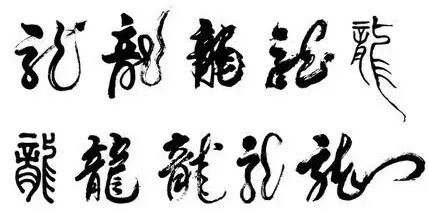 龍龍龍龍龍
龍龍龍龍龍